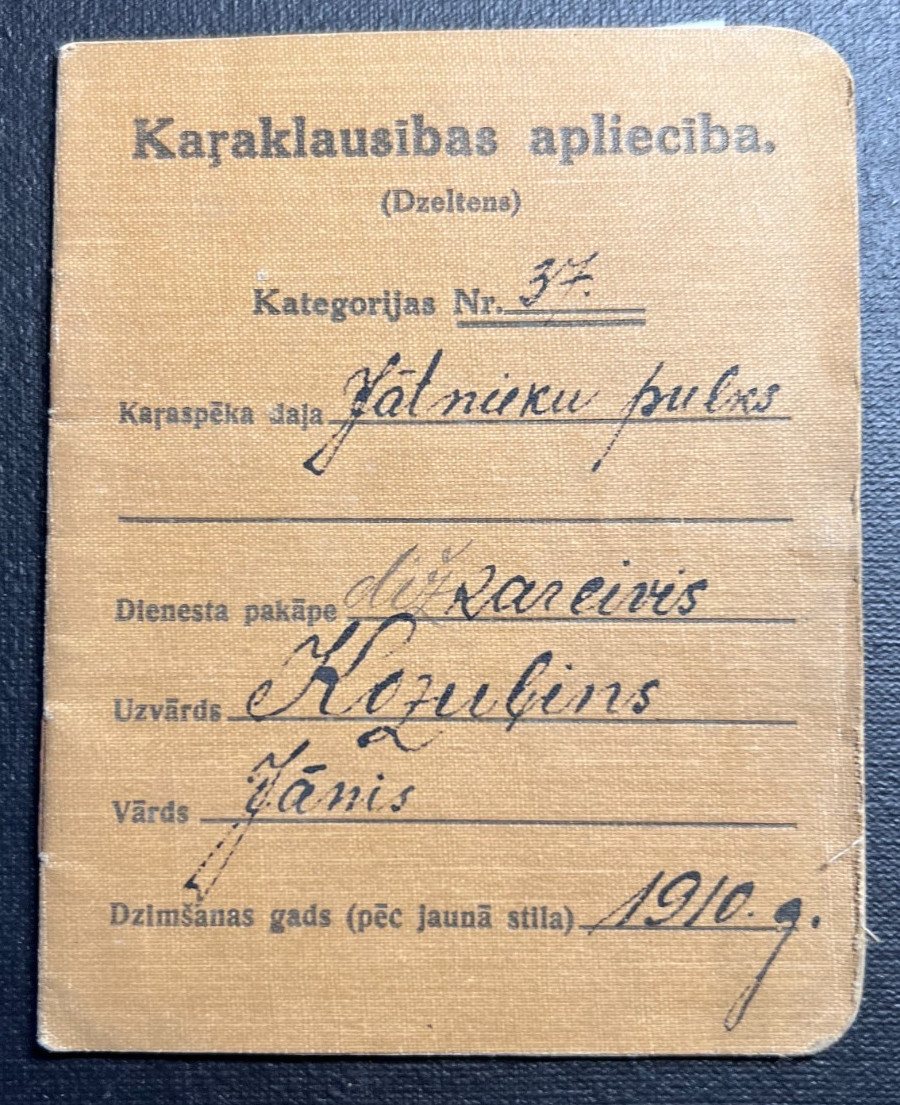 Kaŗaklausības apliecība.
(Dzeltens)
Kategorijas Nr. 37.
Kaŗaspēka daļa Jātnieku pulks
Dienesta pakāpe diž kareivis
Uzvārds Kozuļins
Vārds Jānis
Dzimšanas gads (pēc jaunā stila) 1910. g.